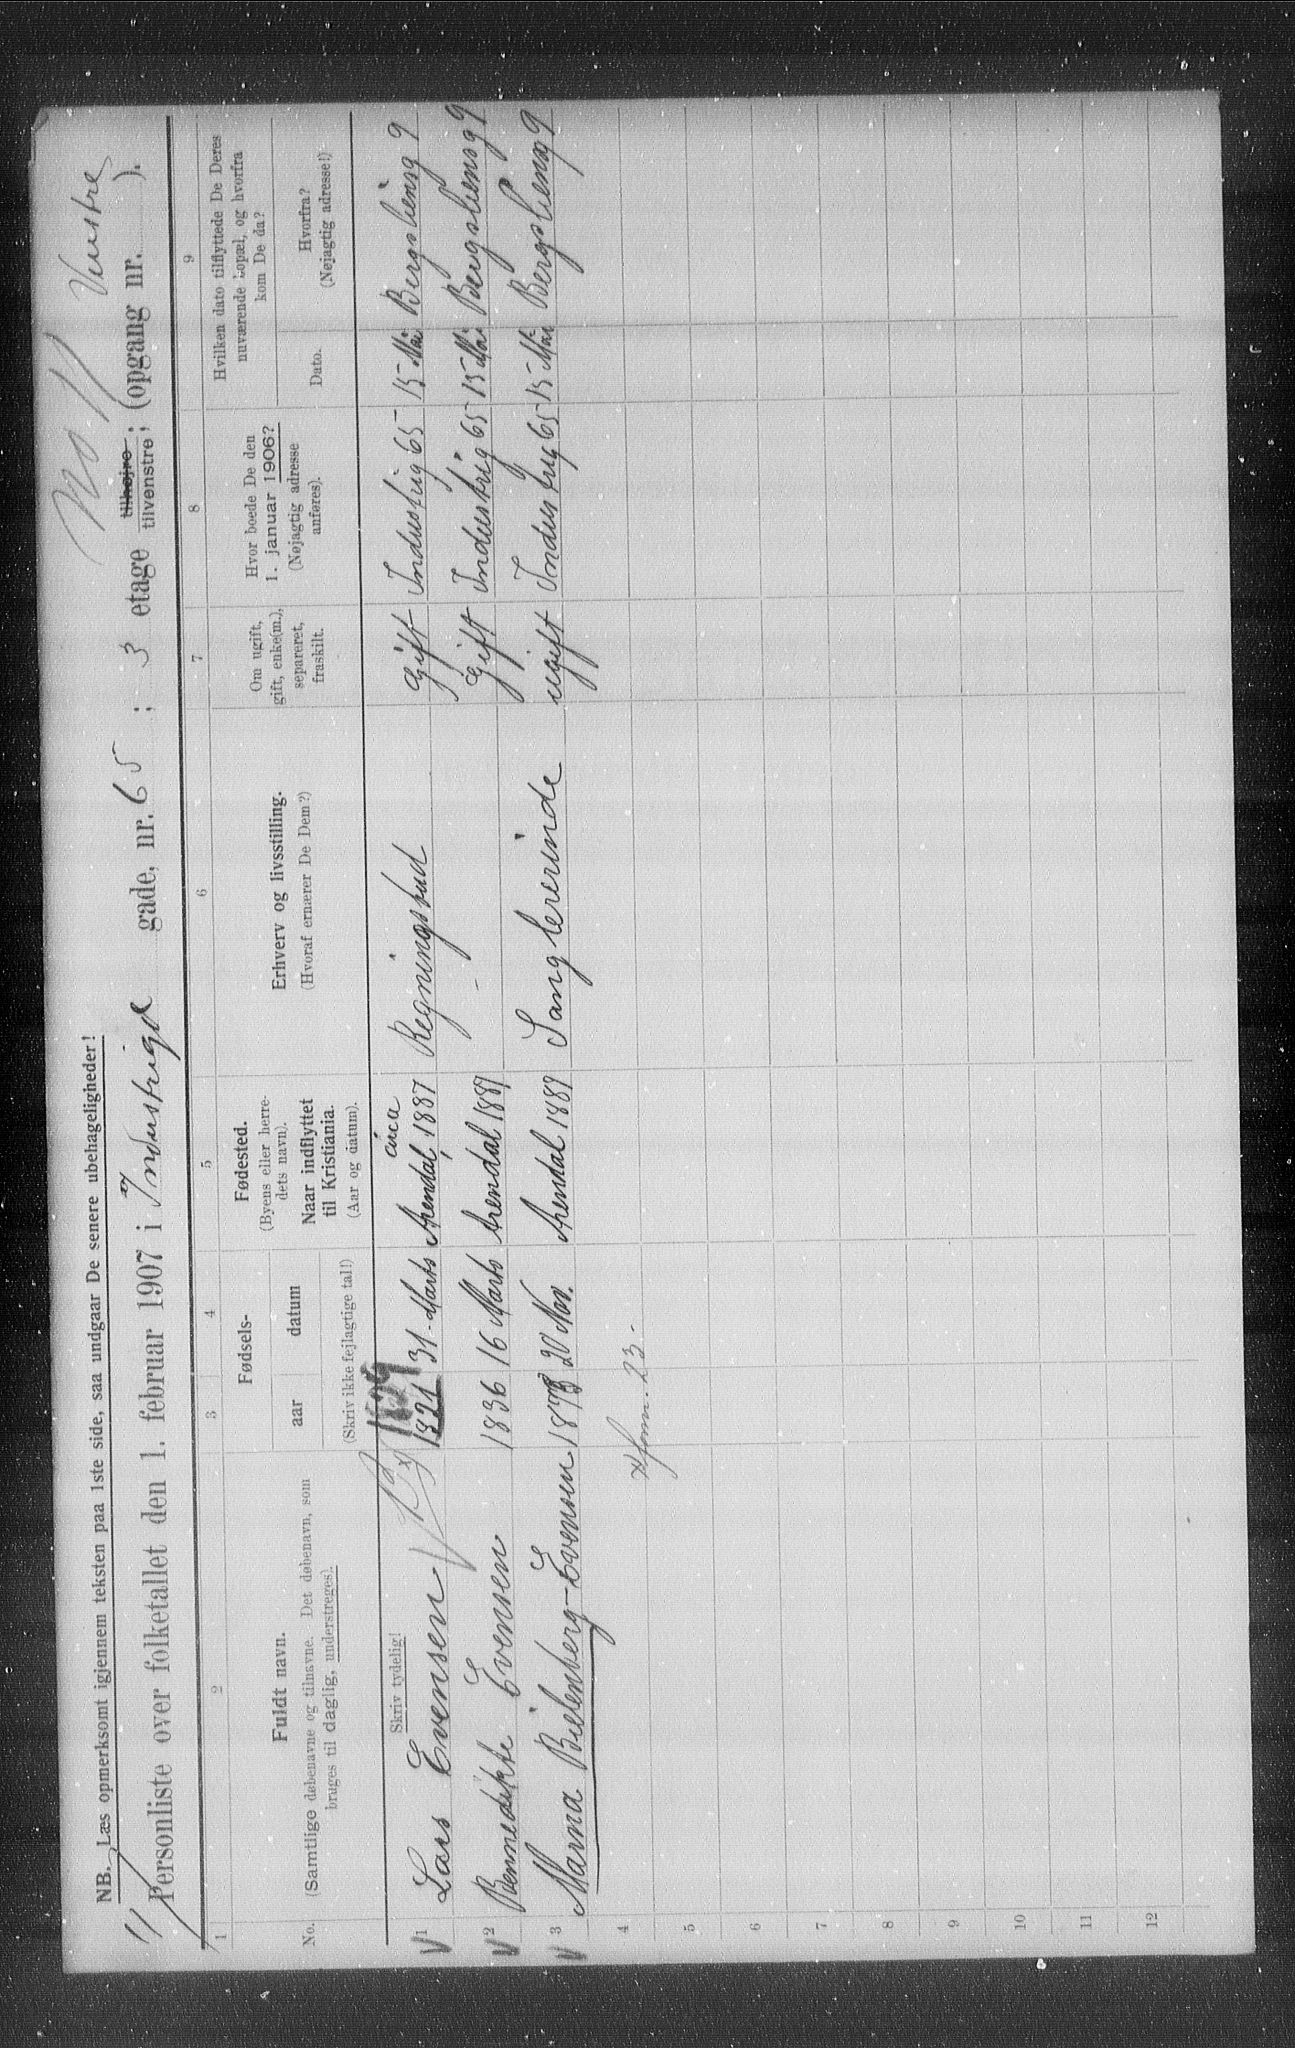 Venstre
NB. Læs opmerksomt igjennem teksten paa 1ste side, saa undgaar De senere ubehageligheder!
Personliste over folketallet den 1. februar 1907 i Industrigd gade, nr. 65 ; 3 etage tilhøjre tilvenstre; (opgang nr. ).
1 2 3 4 5 6 7 8 9
No.
Fuldt navn.
(Samtlige døbenavne og tilnavne. Det døbenavn, som
bruges til daglig, understreges).
Fødsels-
aar datum
(Skriv ikke fejlagtige tal!)
Fødested.
(Byens eller herre-
dets navn).
Naar indflyttet
til Kristiania.
(Aar og datum).
Erhverv og livsstilling.
(Hvoraf ernærer De Dem?)
Om ugift,
gift, enke(m.),
separeret,
fraskilt.
Hvor boede De den
1. januar 1906?
(Nøjagtig adresse
anføres).
Hvilken dato tilflyttede De Deres
nuværende Lopæl, og hvorfra
kom De da?
Dato.
Hvorfra?
(Nøjagtig adresse!)
Skriv tydelig!
1829
circa
V 1 Lars Evensen 1821 31 Marts Arendal, 1887 Regningsbud gift Industrig 65 15 Mai Bergsliensg 9
V 2 Bennedikte Evensen 1836 16 Marts Arendal 1887 - gift Industrig 65 15 Mai Bergsliensg 9
V 3 Marna Bielenberg-Evensen 1873 20 Nov. Arendal 1887 Sanglererinde ugift Industrig 65 15 Mai Bergslieng 9
4
5
6
7
8
9
10
11
12